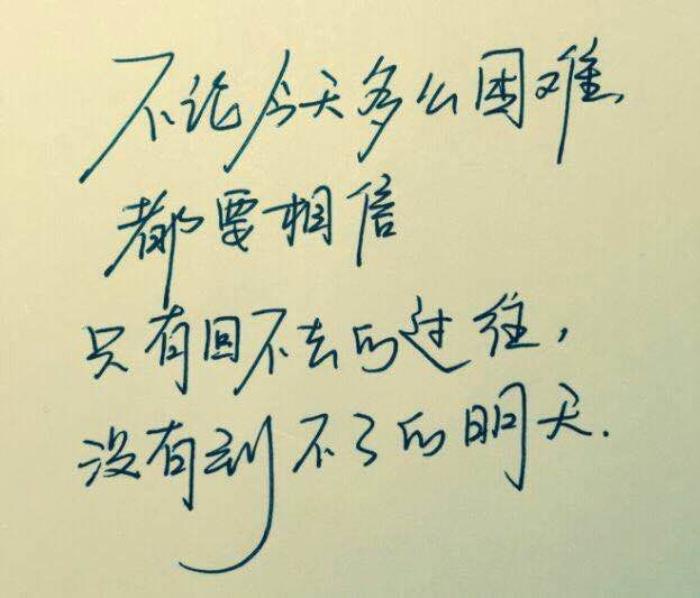 不论今天多么困难
都要相信
只有回不去的过往,
没有到不了的明天.